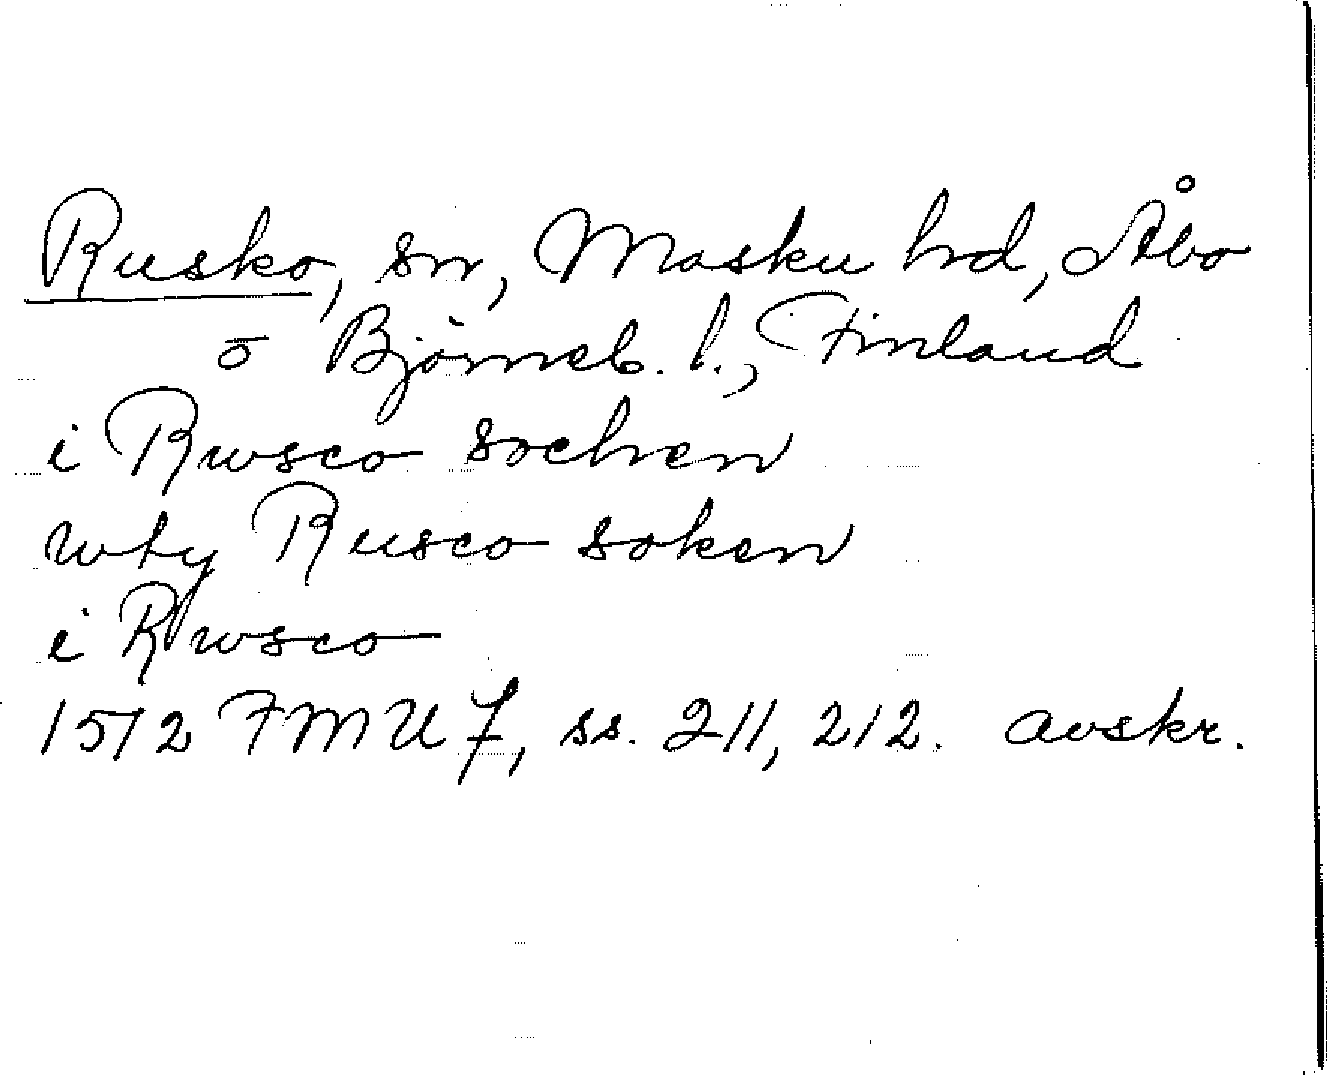 Rusko, sn, Masku hd, Åbo
o Björneb. l., Finland
i Rwsco sochen
wty Rusco soken
i Rwsco
1512 FMU 7, ss. 211, 212. avskr.